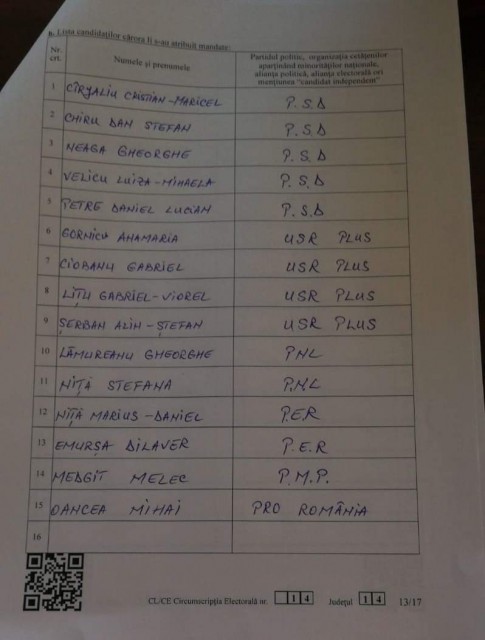 a. Lista candidaților cărora li s-au atribuit mandate:
Nr. crt. Numele și prenumele Partidul politic, organizația cetățenilor aparținând minorităților naționale, alianța politică, alianța electorală ori mențiunea "candidat independent"
1 CÎRJALIU CRISTIAN-MARICEL P.S.D
2 CHIRU DAN STEFAN P.S.D
3 NEAGA GHEORGHE P.S.D
4 VELICU LUIZA-MIHAELA P.S.D
5 PETRE DANIEL LUCIAN P.S.D
6 GORNICU ANAMARIA USR PLUS
7 CIOBANU GABRIEL USR PLUS
8 LIȚU GABRIEL-VIOREL USR PLUS
9 ȘERBAN ALIN-ȘTEFAN USR PLUS
10 LĂMUREANU GHEORGHE PNL
11 NIȚĂ STEFANA P.N.L
12 NIȚĂ MARIUS-DANIEL P.E.R
13 EMURȘA DILAVER P.E.R
14 MEDGIT MELEC P.M.P.
15 OANCEA MIHAI PRO ROMÂNIA
16
CL/CE Circumscripția Electorală nr. 1 4 Județul 1 4 13/17